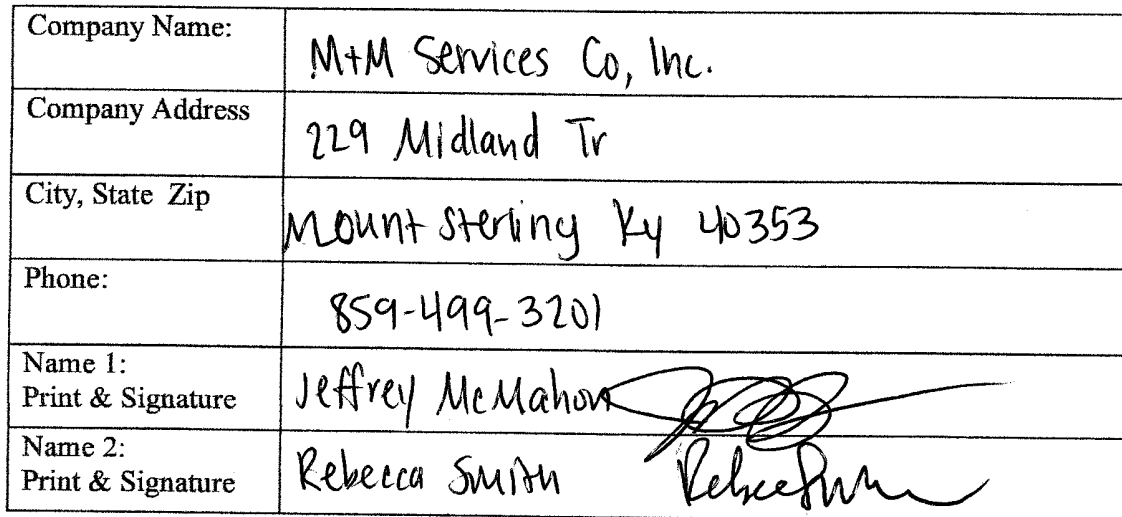 Company Name: M+M Services Co, Inc.
Company Address 229 Midland Tr
City, State Zip Mount Sterling Ky 40353
Phone: 859-499-3201
Name 1:
Print & Signature Jeffrey McMahon
Name 2:
Print & Signature Rebecca Smith